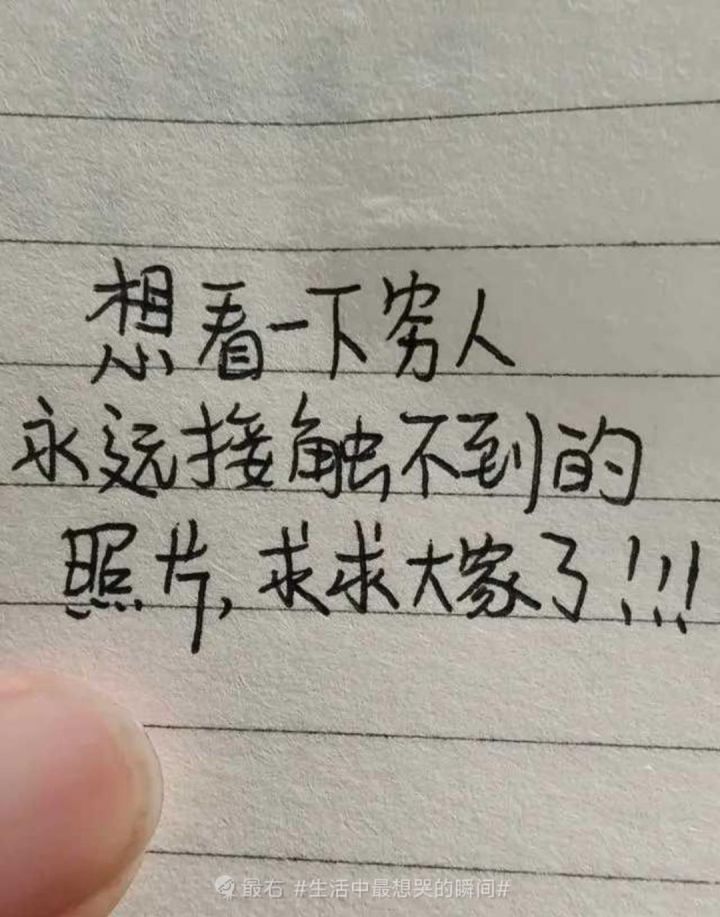 想看一下穷人
永远接触不到的
照片,求求大家了!!!
最右 #生活中最想哭的瞬间#